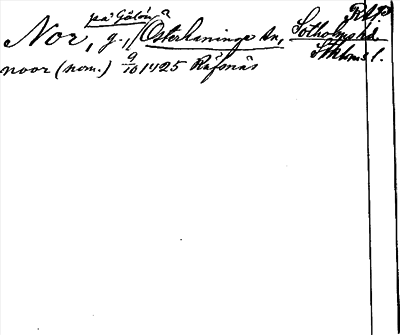 på Gålön
Nor, g., Österhaninge sn, Sotholms hd
Sthlms l.
noor (nom.) 9/10 1425 Räfsnäs